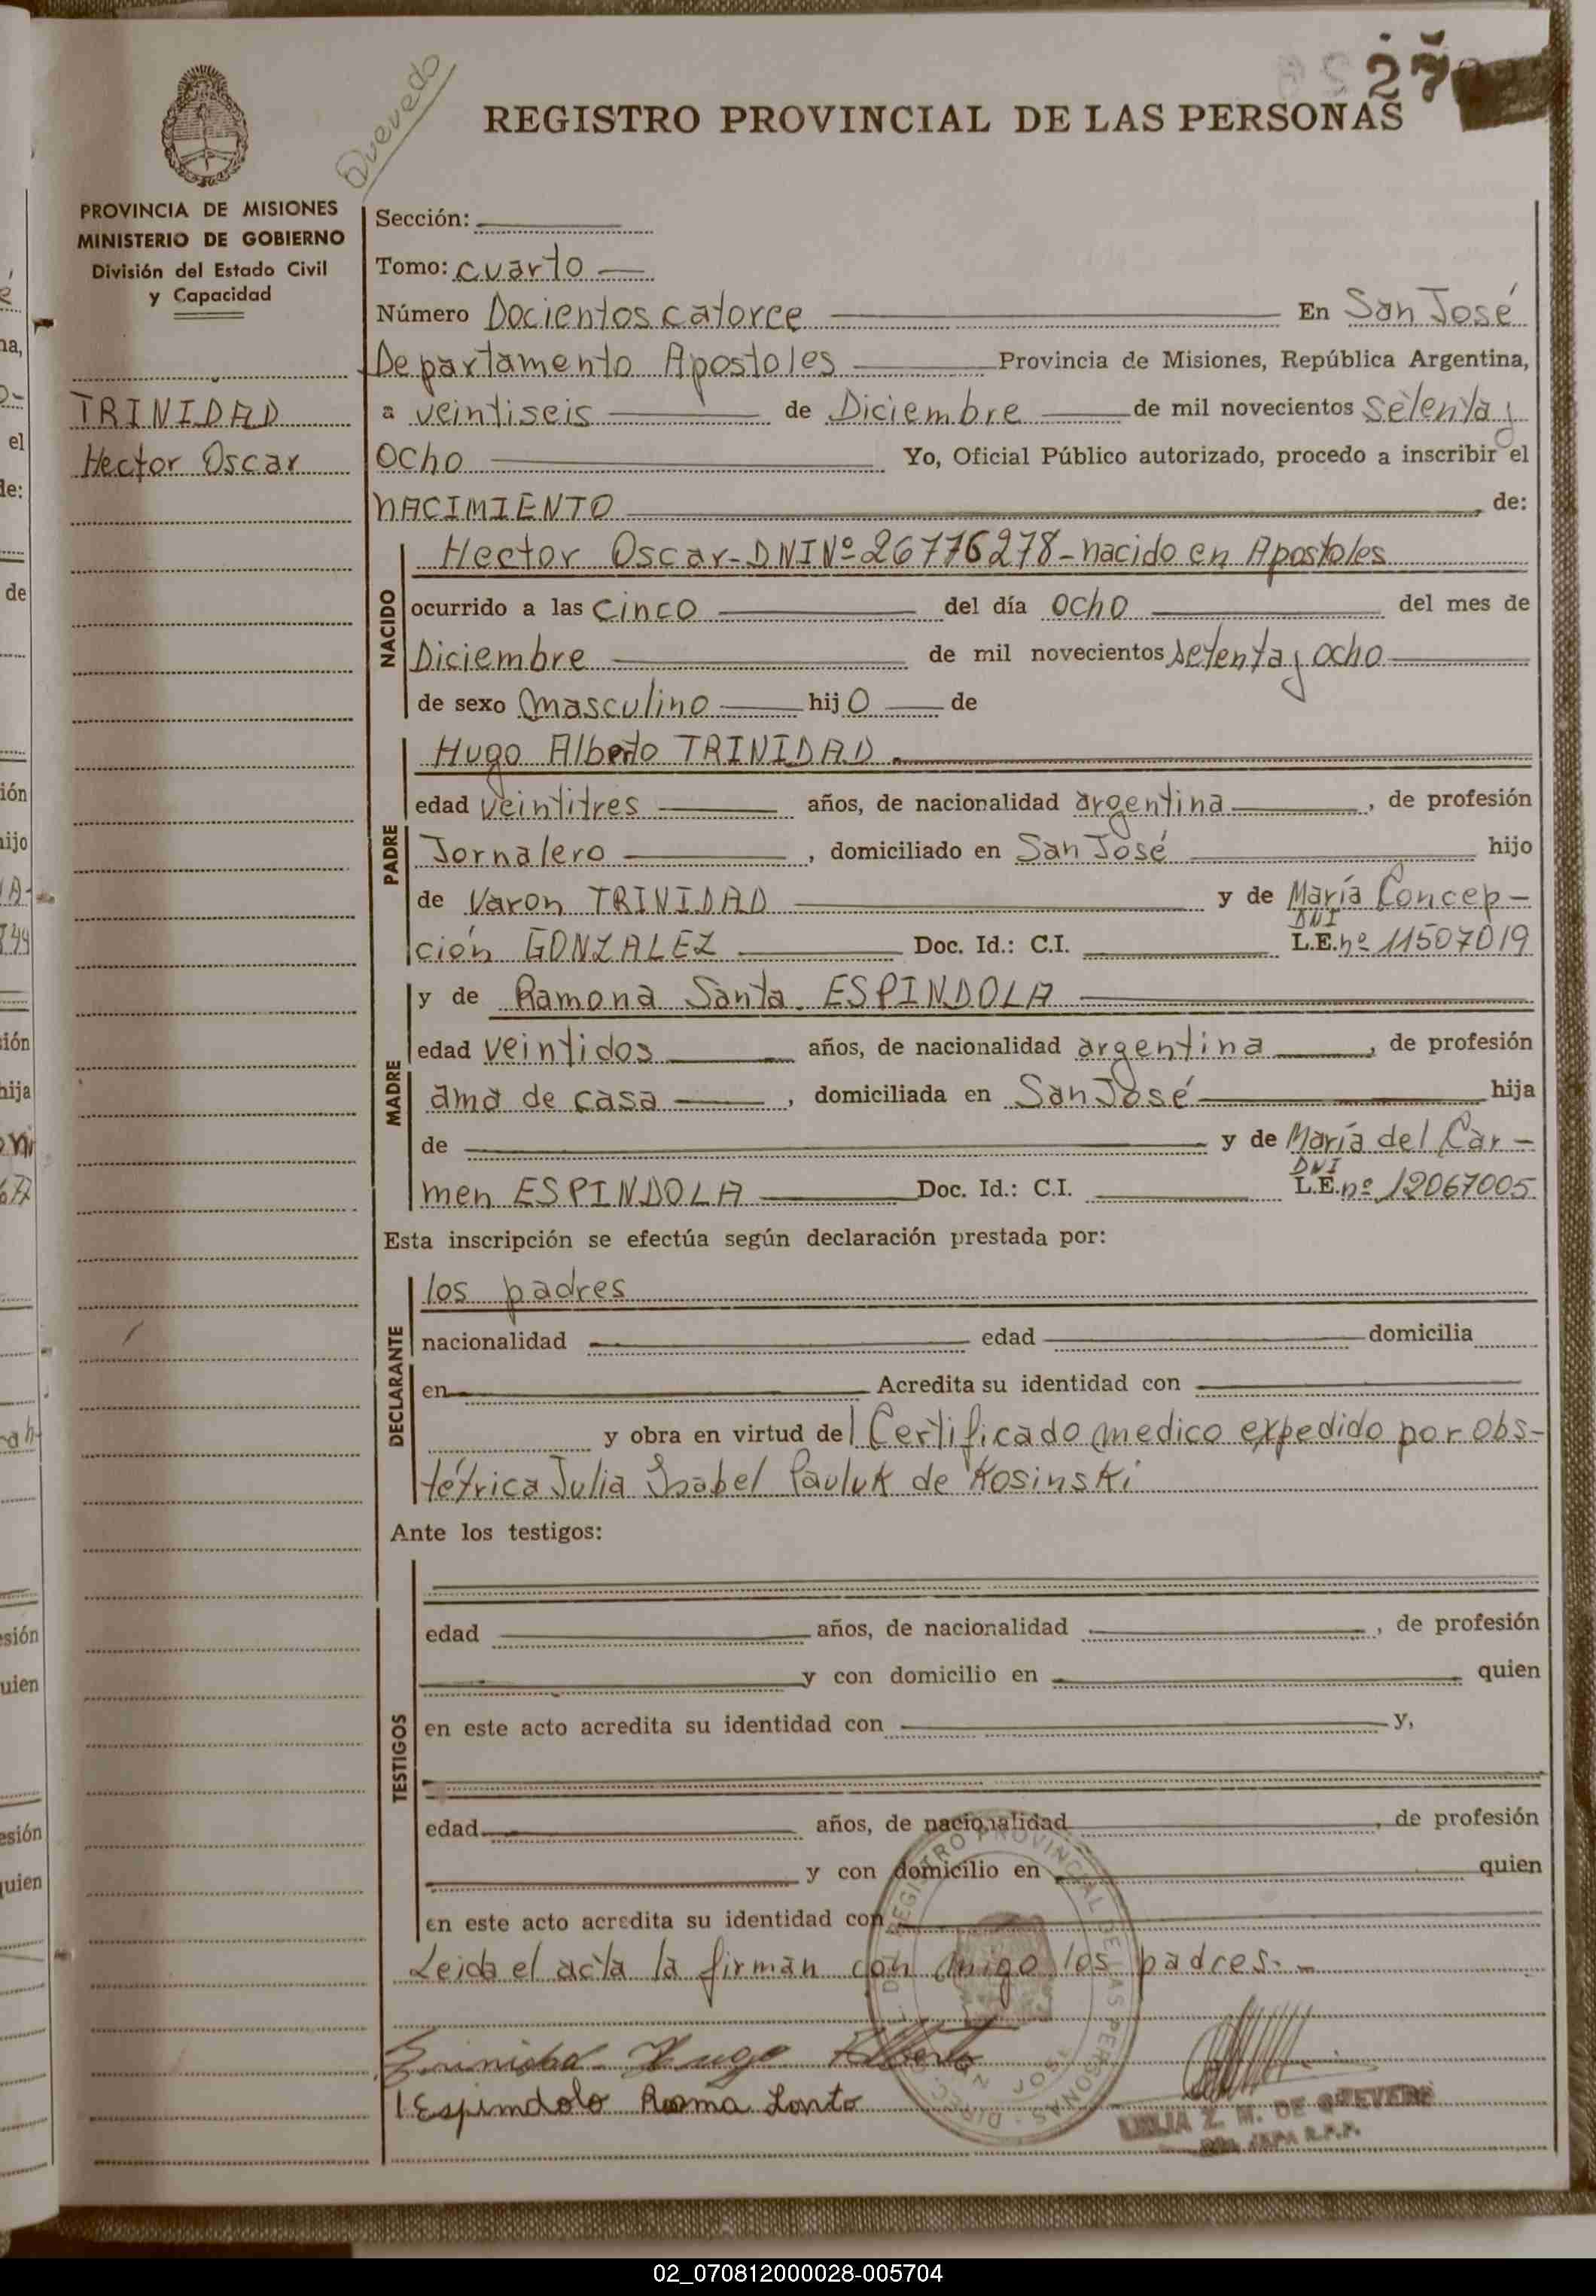 27
Quevedo
REGISTRO PROVINCIAL DE LAS PERSONAS
PROVINCIA DE MISIONES
MINISTERIO DE GOBIERNO
División del Estado Civil
y Capacidad
TRINIDAD
Hector Oscar
Sección:
Tomo: cuarto
Número Docientos catorce En San José
Departamento Apostoles Provincia de Misiones, República Argentina,
a veintiseis de Diciembre de mil novecientos setenta y
ocho Yo, Oficial Público autorizado, procedo a inscribir el
NACIMIENTO de:
NACIDO
Hector Oscar-DNI Nº 26776278-nacido en Apostoles
ocurrido a las cinco del día ocho del mes de
Diciembre de mil novecientos setenta y ocho
de sexo masculino hijo de
PADRE
Hugo Alberto TRINIDAD
edad veintitres años, de nacionalidad argentina, de profesión
Jornalero, domiciliado en San José hijo
de Varon TRINIDAD y de María Concep-
DNI
ción GONZALEZ Doc. Id.: C.I. L.E. nº 11507019
MADRE
y de Ramona Santa ESPINDOLA
edad veintidos años, de nacionalidad argentina, de profesión
ama de casa, domiciliada en San José hija
de y de María del Car-
DNI
men ESPINDOLA Doc. Id.: C.I. L.E. nº 12067005
Esta inscripción se efectúa según declaración prestada por:
DECLARANTE
los padres
nacionalidad edad domicilia
en Acredita su identidad con
y obra en virtud del Certificado medico expedido por obs-
tétrica Julia Isabel Pauluk de Kosinski
Ante los testigos:
TESTIGOS
edad años, de nacionalidad, de profesión
y con domicilio en quien
en este acto acredita su identidad con y,
edad años, de nacionalidad, de profesión
y con domicilio en quien
en este acto acredita su identidad con
Leida el acta la firman con migo los padres.-
REGISTRO PROVINCIAL DE LAS PERSONAS
Trinidad Hugo Alberto
Espindola Roma Santo
Z. M. DE QUEVEDO
JEFA R.P.P.
02_070812000028-005704